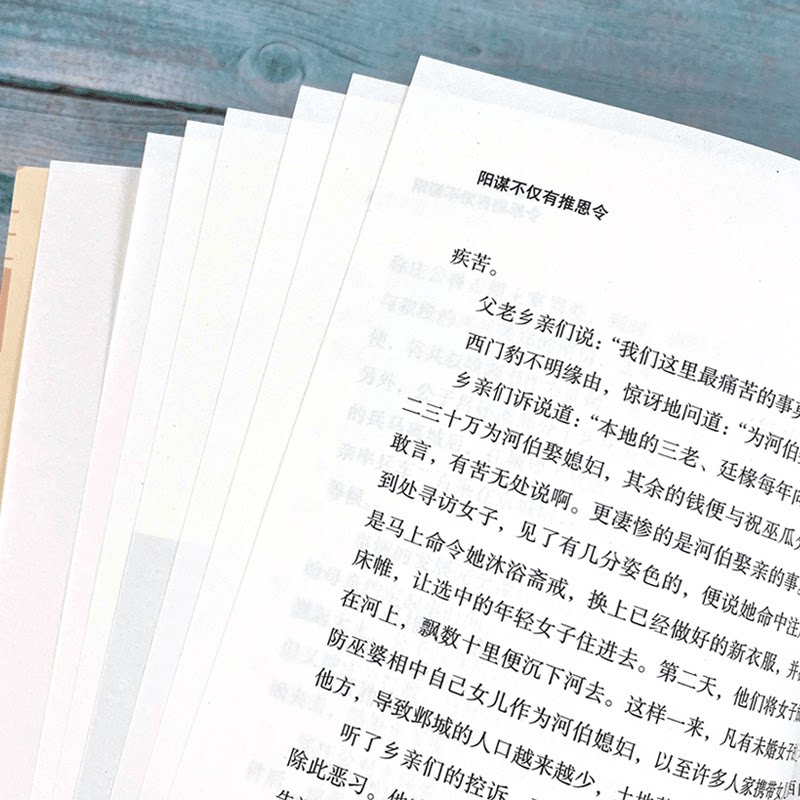 阳谋不仅有推恩令
疾苦。
父老乡亲们说：“我们这里最痛苦的事莫
西门豹不明缘由，惊讶地问道：“为河伯
乡亲们诉说道：“本地的三老、廷椽每年向
二三十万为河伯娶媳妇，其余的钱便与祝巫瓜分
敢言，有苦无处说啊。更凄惨的是河伯娶亲的事
到处寻访女子，见了有几分姿色的，便说她命中注
是马上命令她沐浴斋戒，换上已经做好的新衣服，并
床帷，让选中的年轻女子住进去。第二天，他们将女子
在河上，飘数十里便沉下河去。这样一来，凡有未婚女
防巫婆相中自己女儿作为河伯媳妇，以至许多人家携带女
他方，导致邺城的人口越来越少，土地
听了乡亲们的控诉，
除此恶习。